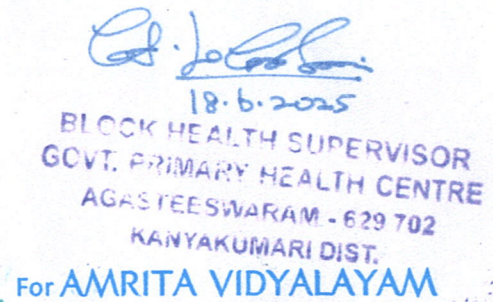 18.6.2025
BLOCK HEALTH SUPERVISOR
GOVT. PRIMARY HEALTH CENTRE
AGASTEESWARAM - 629 702
KANYAKUMARI DIST.
For AMRITA VIDYALAYAM